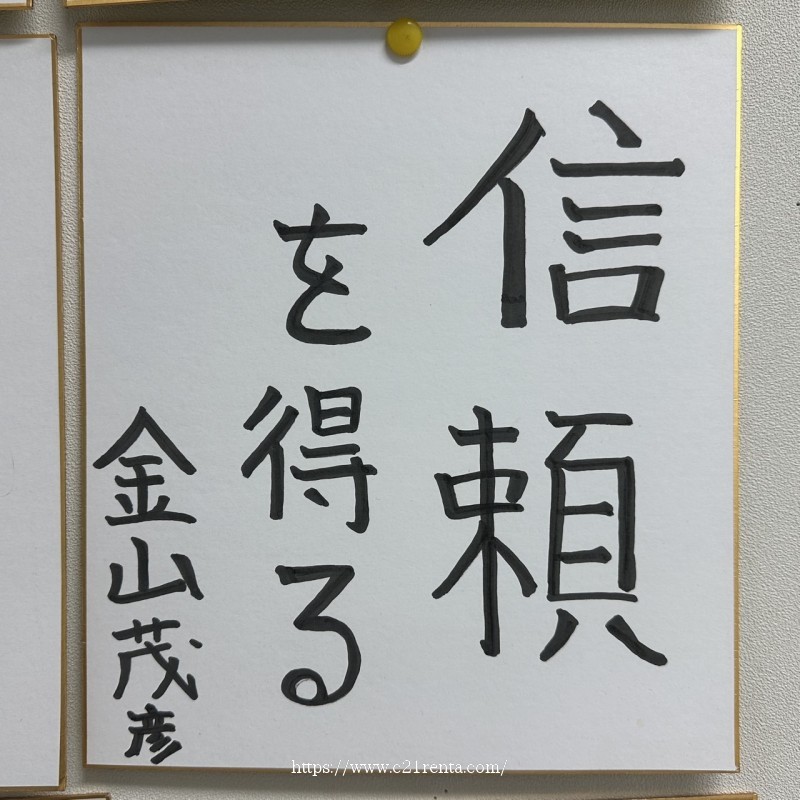 信頼
を得る
金山茂彦
https://www.c21renta.com/